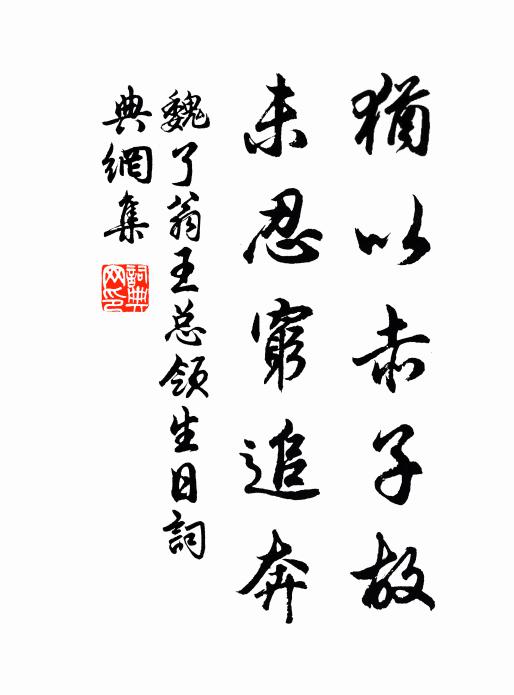 猶以赤子故
未忍窮追奔
魏了翁王总領生日詞
典網集
詞典网印